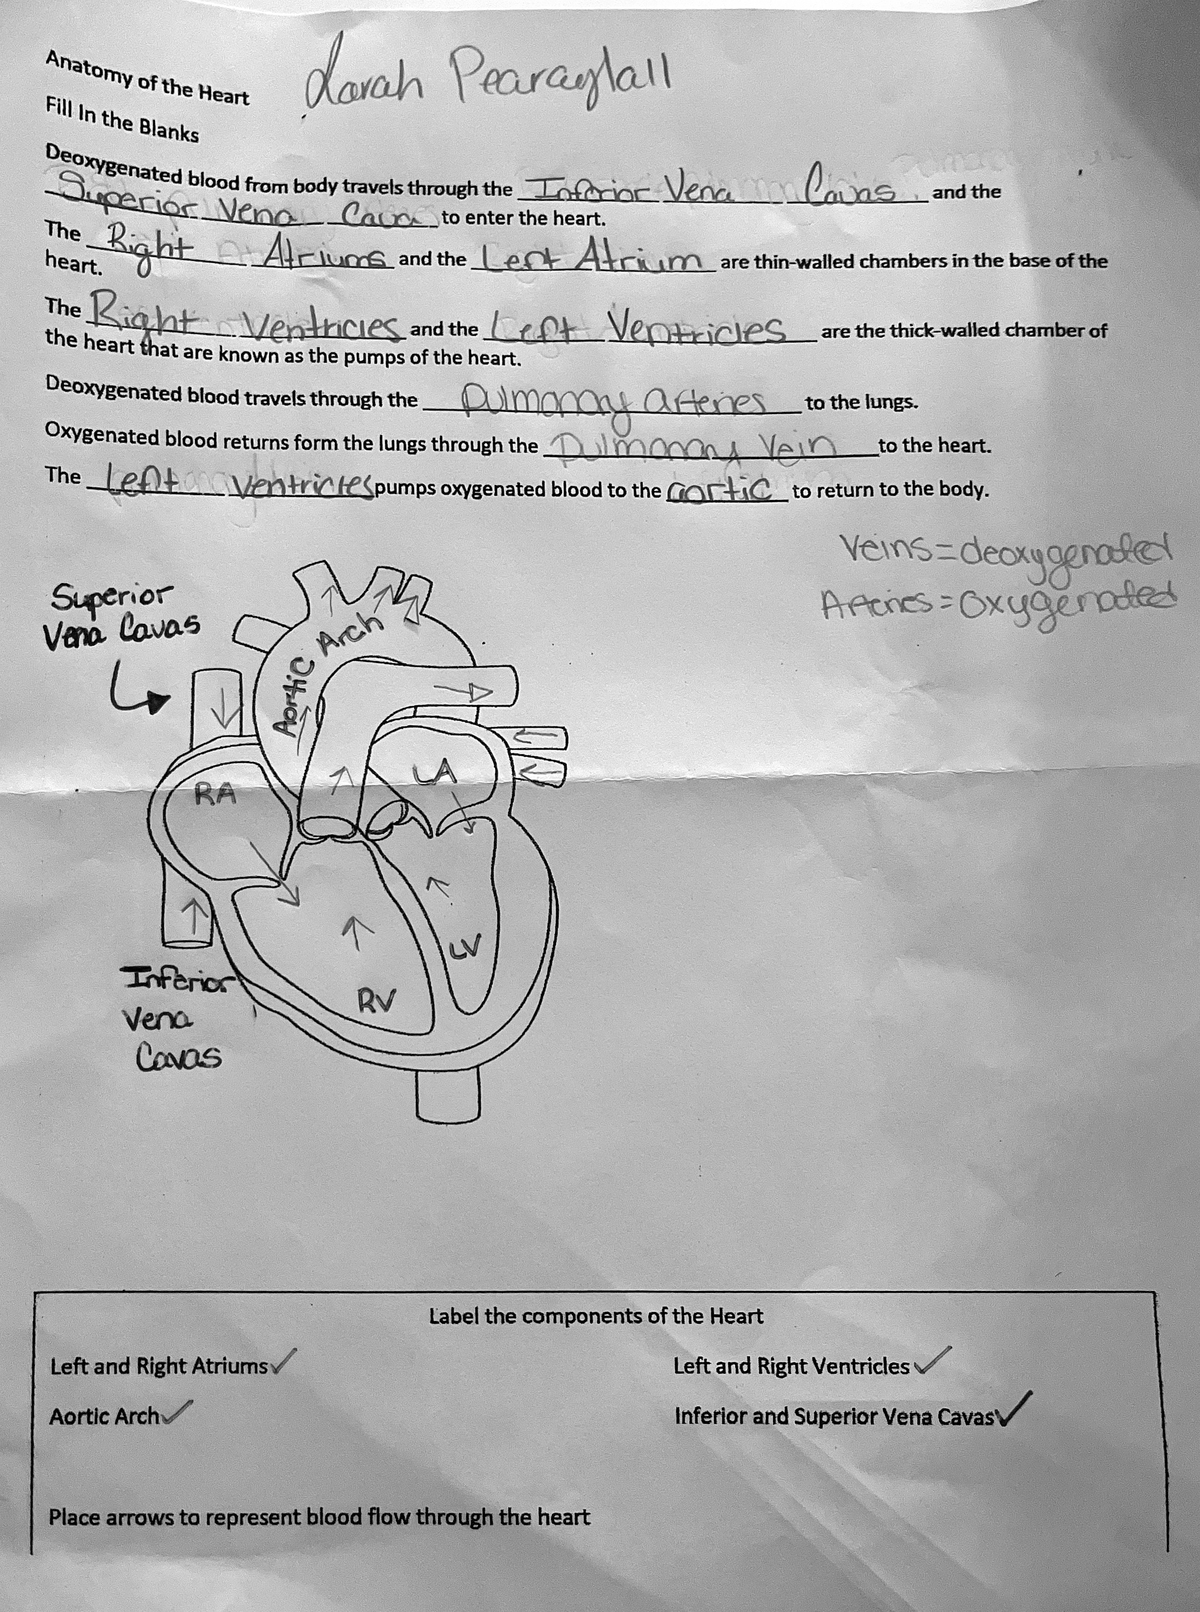 Anatomy of the Heart
Fill In the Blanks
Deoxygenated blood from body travels through the Inferior Vena Cavas and the
Superior Vena Cava to enter the heart.
The Right Atriums and the Left Atrium are thin-walled chambers in the base of the
heart.
The Right Ventricles and the Left Ventricles are the thick-walled chamber of
the heart that are known as the pumps of the heart.
Deoxygenated blood travels through the Pulmonary arteries to the lungs.
Oxygenated blood returns form the lungs through the Pulmonary Vein to the heart.
The Left ventricles pumps oxygenated blood to the aortic to return to the body.
Veins = deoxygenated
Arteries = Oxygenated
Superior
Vena Cavas
Aortic Arch
RA
LA
LV
RV
Inferior
Vena
Cavas
Label the components of the Heart
Left and Right Atriums✓
Left and Right Ventricles✓
Aortic Arch✓
Inferior and Superior Vena Cavas✓
Place arrows to represent blood flow through the heart